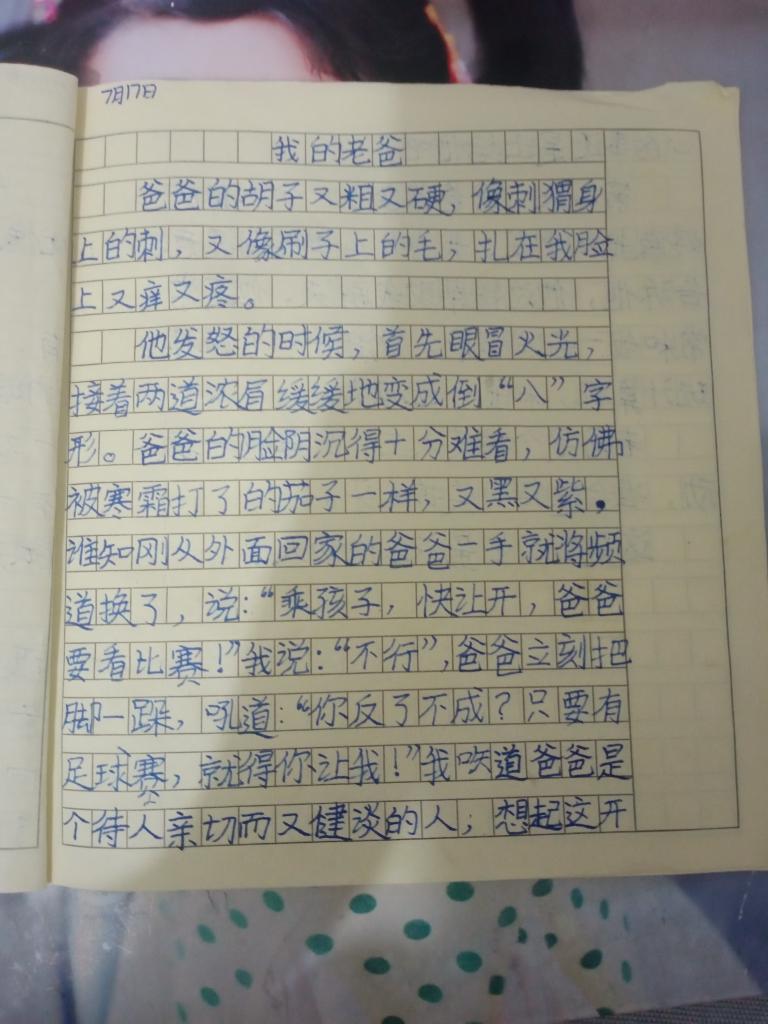 7月17日
我的老爸
爸爸的胡子又粗又硬，像刺猬身
上的刺，又像刷子上的毛；扎在我脸
上又痒又疼。
他发怒的时候，首先眼冒火光，
接着两道浓眉缓缓地变成倒“八”字
形。爸爸的脸阴沉得十分难看，仿佛
被寒霜打了的茄子一样，又黑又紫。
谁知刚从外面回家的爸爸二手就将频
道换了，说：“乘孩子，快让开，爸爸
要看比赛！”我说：“不行”，爸爸立刻把
脚一跺，吼道：“你反了不成？只要有
足球赛，就得你让我！”我 道爸爸是
个待人亲切而又健谈的人；想起这开